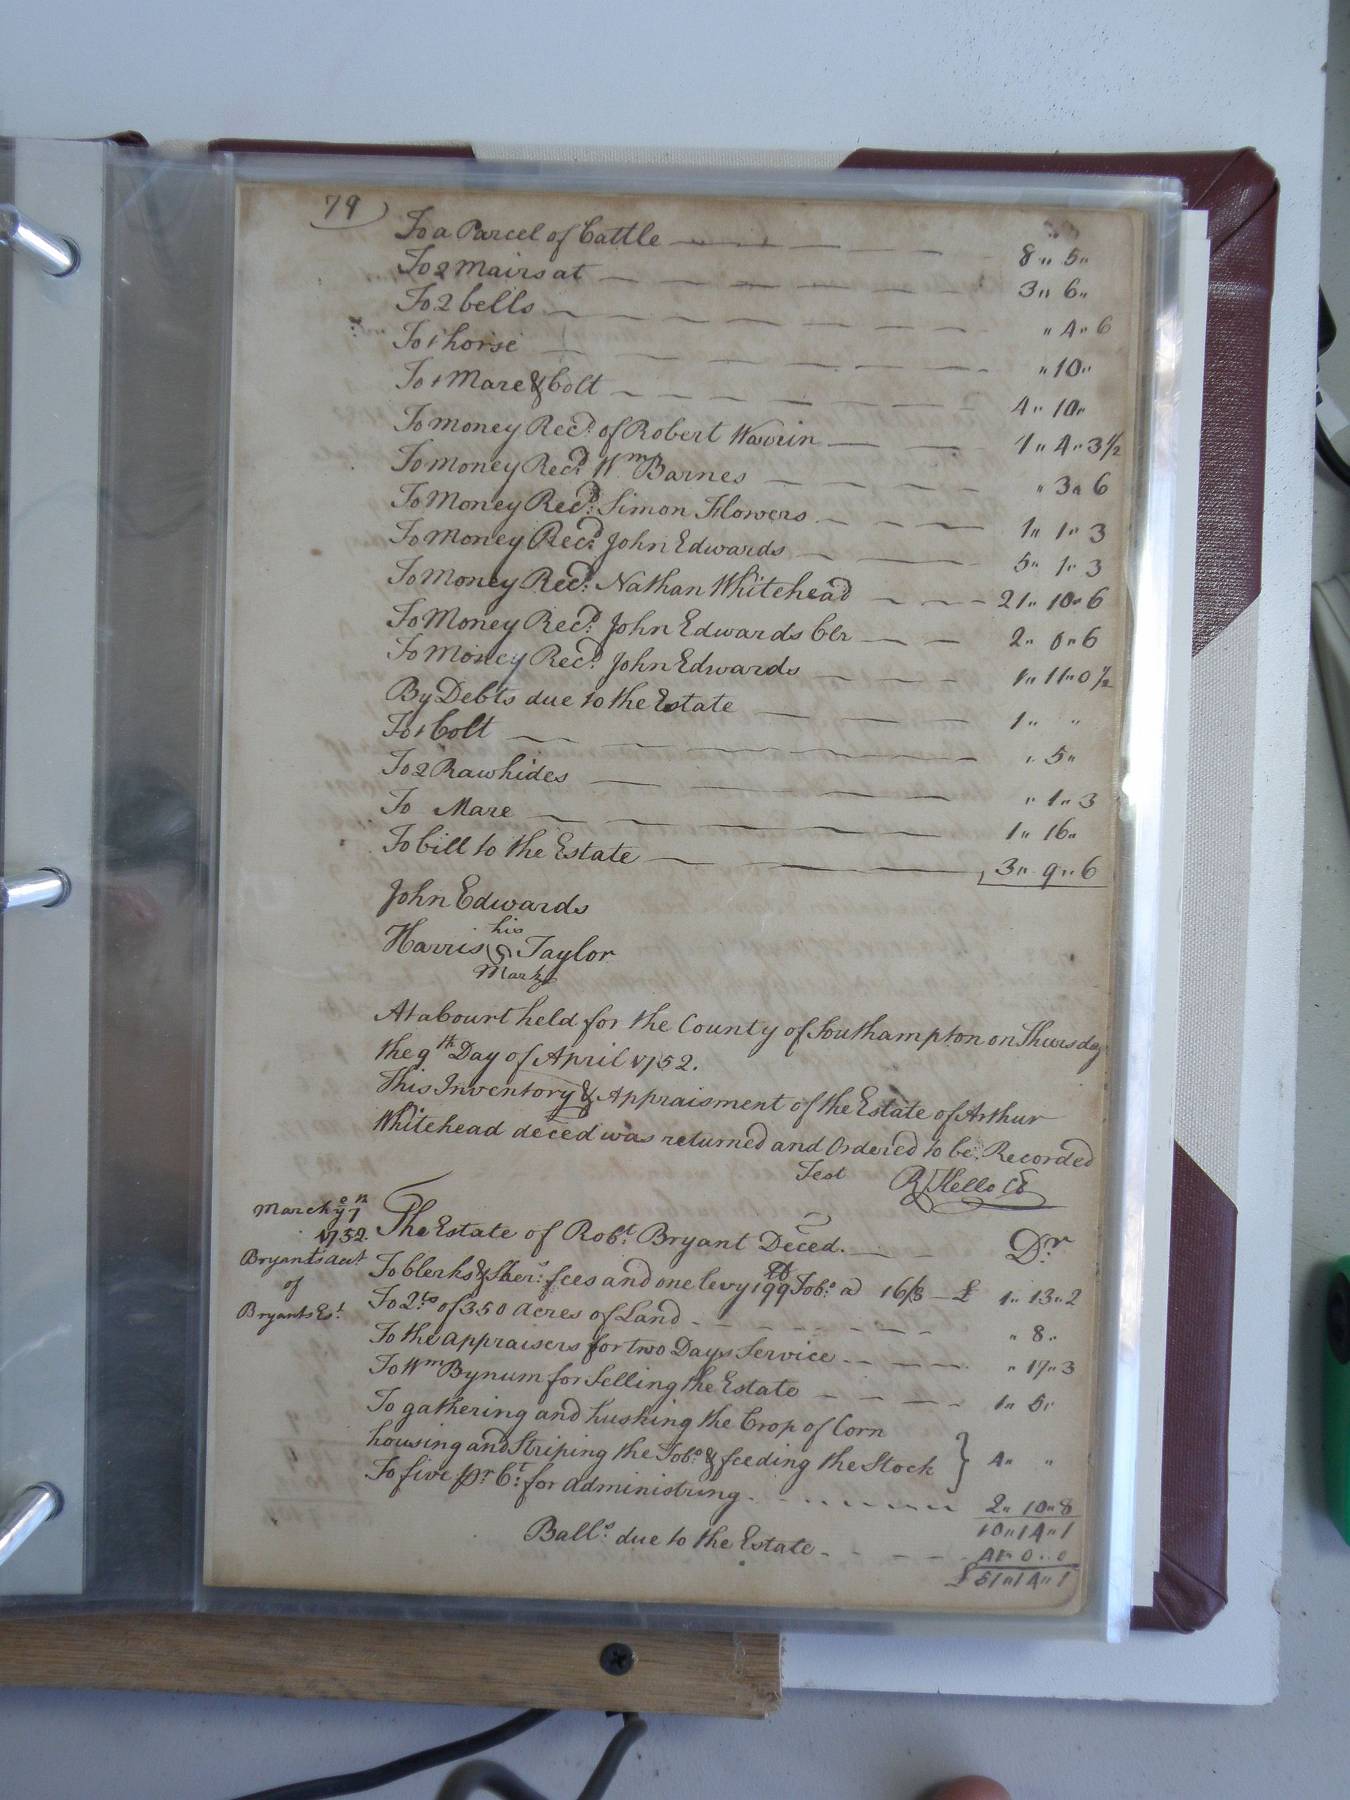 79)
To a Parcel of Cattle 8 " 5 "
To 2 Mairs at 3 " 6 "
To 2 bells " 4 " 6
To 1 horse " 10 "
To 1 Mare & Colt 4 " 10 "
To money Recd. of Robert Warrin 1 " 4 " 3½
To money Recd. Wm Barnes " 3 " 6
To Money Recd. Simon Flowers 1 " 1 " 3
To Money Recd. John Edwards 5 " 1 " 3
To Money Recd. Nathan Whitehead 21 " 10 " 6
To Money Recd. John Edwards Clr 2 " 0 " 6
To Money Recd. John Edwards 1 " 11 " 0½
By Debts due to the Estate 1 " "
To 1 Colt " 5 "
To 2 Rawhides " 1 " 3
To Mare 1 " 16 "
To bill to the Estate 3 " 9 " 6
John Edwards
his
Harris Taylor
Mark
At a Court held for the County of Southampton on Thursday
the 9th Day of April 1752.
This Inventory & Appraisment of the Estate of Arthur
Whitehead deced was returned and Ordered to be Recorded
Test R Kello Cl
March ye 7
1752
Bryants Acct
of
Bryants Est.
The Estate of Robt. Bryant Deced. Dr
To Clerks & Sher: fees and one levy 199 Tobo. a 16/8 £ 1 " 13 " 2
To 2 of 350 Acres of Land " 8 "
To the appraisers for two Days Service " 17 " 3
To Wm Bynum for Selling the Estate 1 " 5 "
To gathering and husking the Crop of Corn
housing and Striping the Tobo. & feeding the Stock } 4 " "
To five pr Ct. for administring 2 " 10 " 8
10 " 14 " 1
Balls. due to the Estate 41 " 0 " 0
£ 51 " 14 " 1